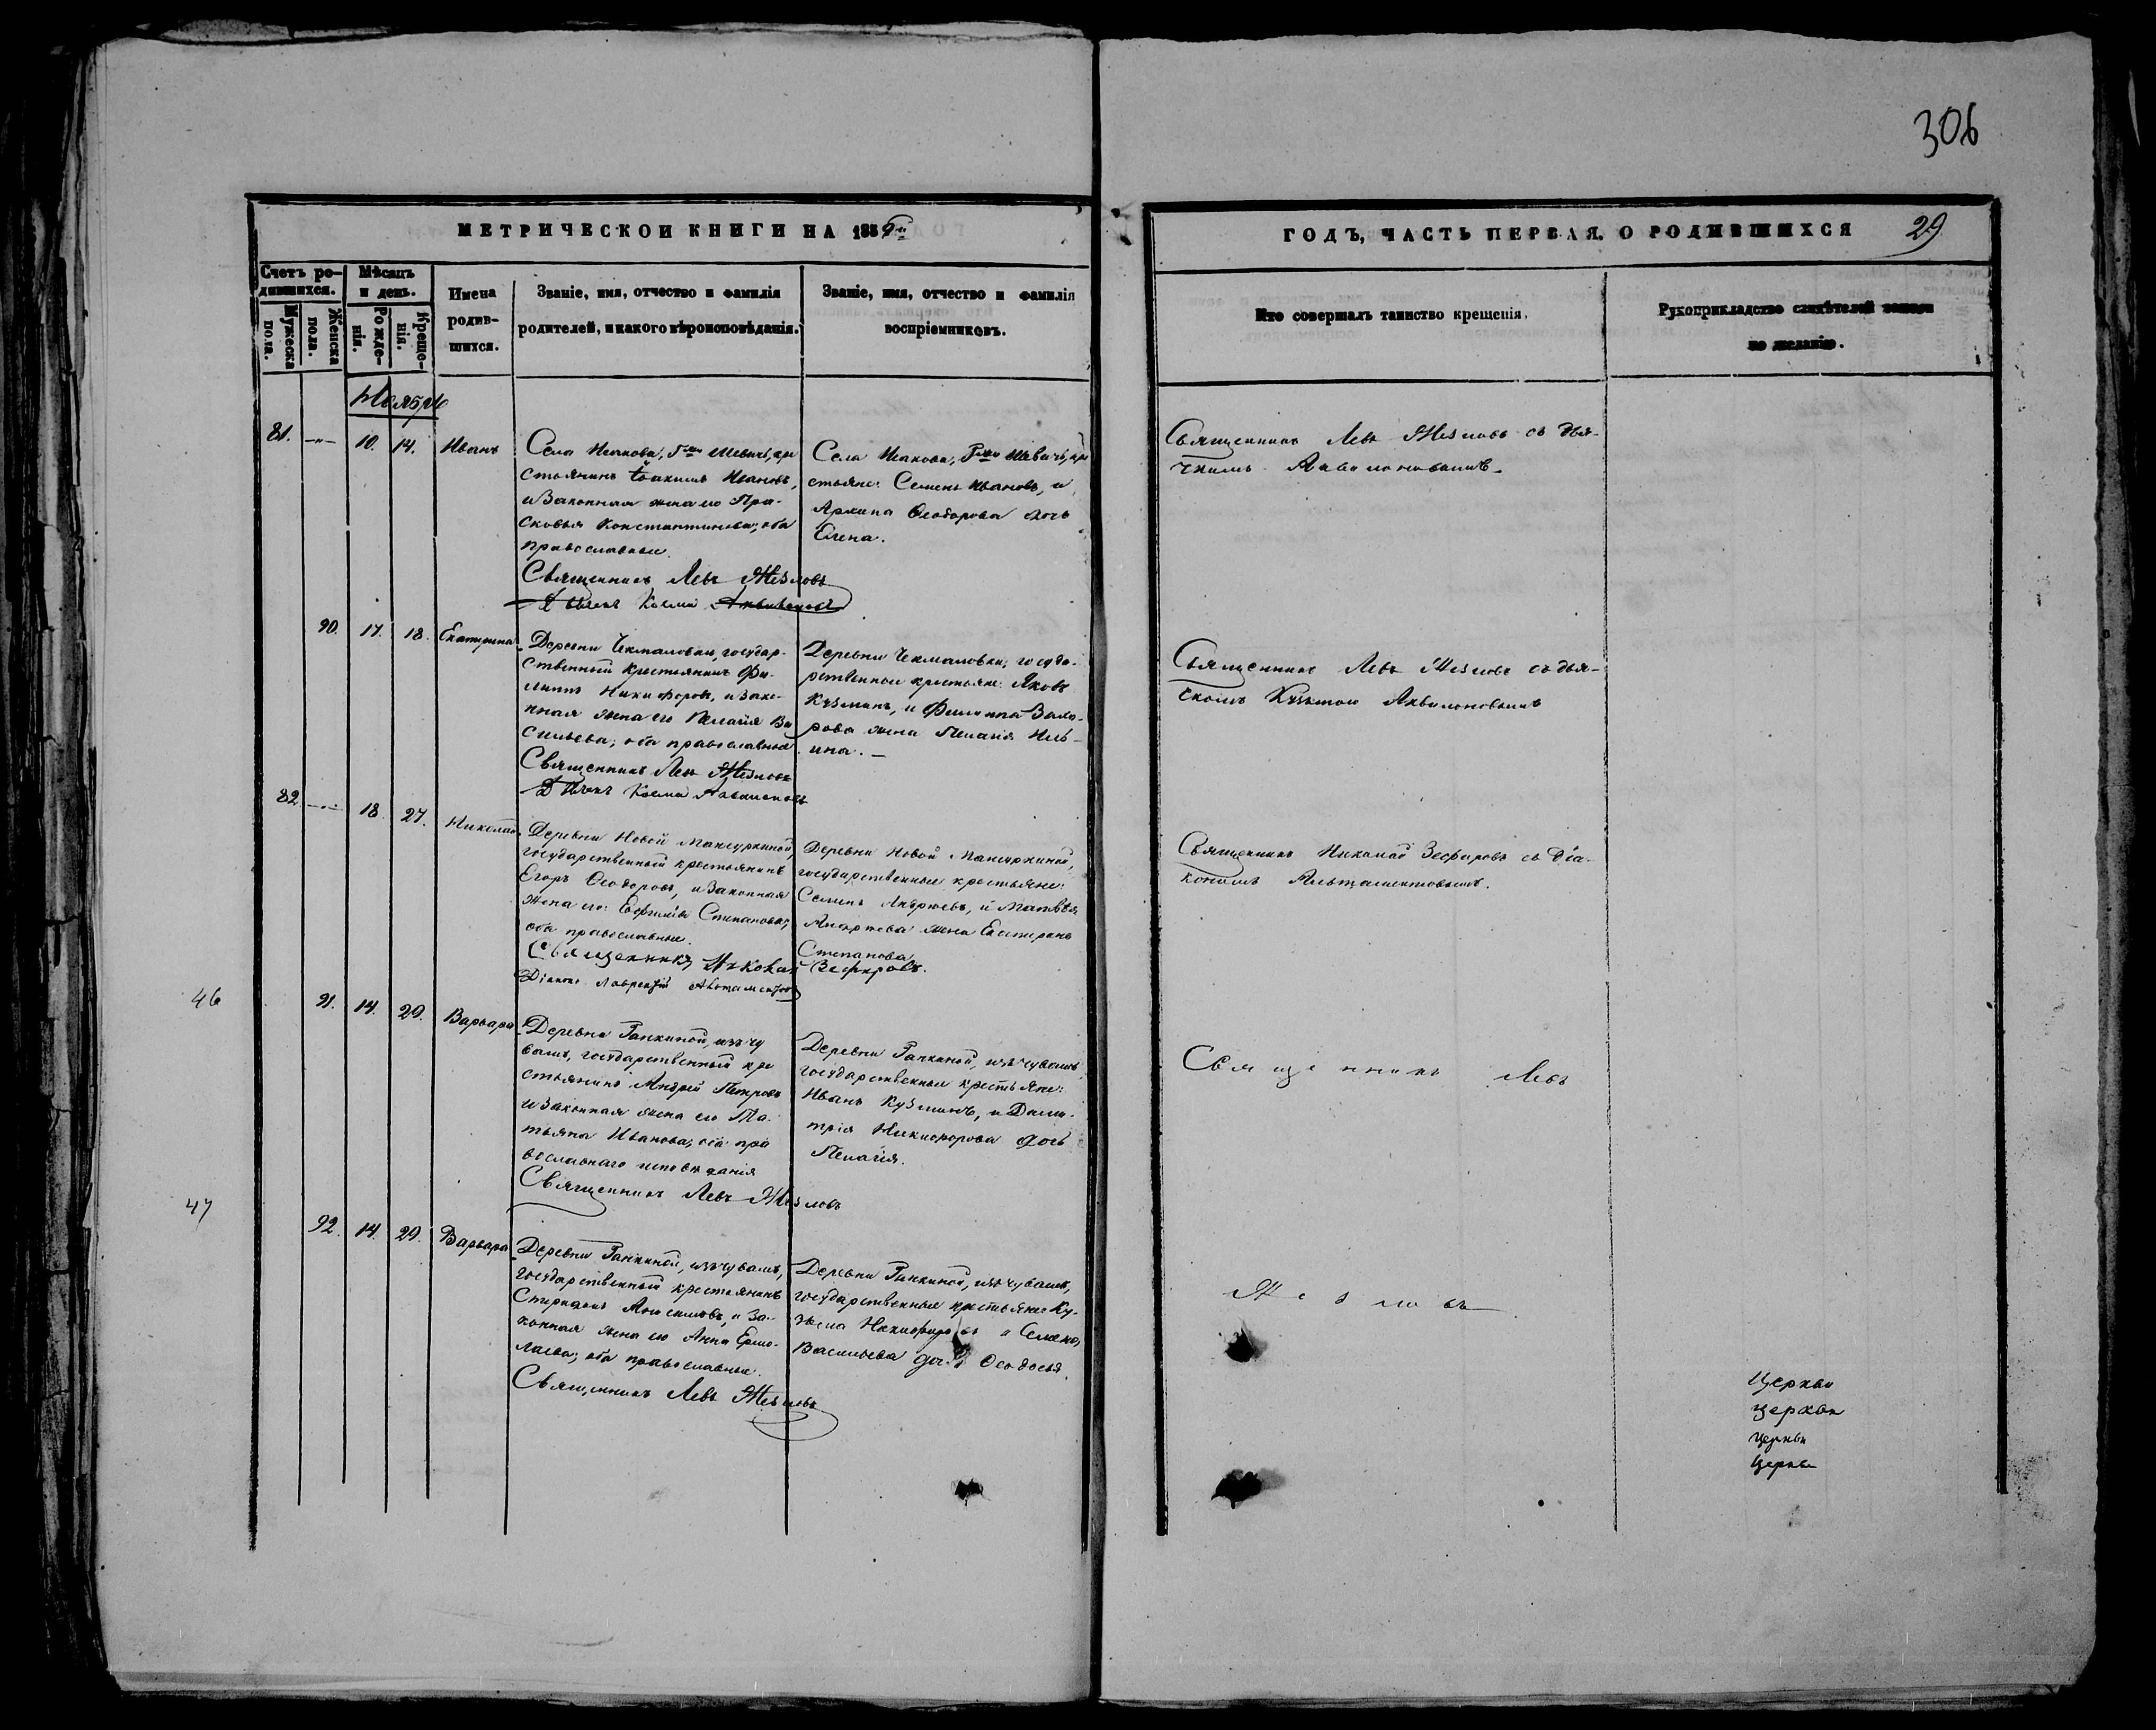 306
МЕТРИЧЕСКОИ КНИГИ НА 185
ГОДЪ, ЧАСТЬ ПЕРВАЯ, О РОДИВШИХСЯ 29
Счетъ ро-
дившихся.
Мужеска
пола.
Женска
пола.
Мѣсяцъ
и день.
Рожде-
нія.
Креще-
нія.
Имена
родив-
шихся.
Званіе, имя, отчество и фамилія
родителей, и какого вѣроисповѣданія.
Званіе, имя, отчество и фамилія
воспріемниковъ.
Кто совершалъ таинство крещенія.
Рукоприкладство свидѣтелей записи
по желанію.
Ноября
81. 10. 14. Иванъ
Села Исакова, Шевичъ, кре
стьянинъ Іоакимъ Ивановъ,
и законная жена его Пра-
сковья Константинова; оба
православные.
Священникъ Левъ Жезловъ
Косма Аквилоновъ
Села Исакова, Шевичъ, кре
стьяне: Семенъ Ивановъ, и
Архипа Ѳеодорова дочь
Елена.
Священникъ Левъ Жезловъ съ дья-
чкомъ Аквилоновымъ.
90. 17. 18. Екатерина
Деревни Чекмаловки, государ-
ственный крестьянинъ Фи-
липпъ Никифоровъ, и зако-
нная жена его Пелагія Ва
сильева; оба православные
Священникъ Левъ Жезловъ
Косма Аквилоновъ
Деревни Чекмаловки, госуда-
рственные крестьяне: Яковъ
Кузминъ, и Филиппа
жена Пелагія Иль-
ина. —
Священникъ Левъ Жезловъ съ дья-
чкомъ Кузьмою Аквилоновымъ
82 18. 27. Николай
Деревни Новой Мансуркиной,
государственный крестьянинъ
Егоръ Ѳеодоровъ, и законная
жена его Евфимія Степанова;
оба православные.
Священникъ Николай Зефировъ.
Діаконъ Лаврентій
Деревни Новой Мансуркиной,
государственные крестьяне:
Семенъ Андреевъ, и Матвѣя
Андреева жена Екатерина
Степанова
Священникъ Николай Зефировъ съ діа-
кономъ
46
91. 14. 29. Варвара
Деревни Ганкиной, изъ чу
вашъ, государственный кре
стьянинъ Андрей Петровъ
и законная жена его Та-
тьяна Иванова; оба пра
вославнаго исповѣданія
Священникъ Левъ Жезловъ
Деревни Ганкиной, изъ чувашъ,
государственные крестьяне:
Иванъ Кузминъ, и Дими-
трія Никифорова дочь
Пелагія.
Священникъ Левъ
47
92. 14. 29. Варвара
Деревни Ганкиной, изъ чувашъ,
государственный крестьянинъ
Спиридонъ и за-
конная жена его Анна Ермо-
лаева; оба православные.
Священникъ Левъ Жезловъ
Деревни Ганкиной, изъ чувашъ,
государственные крестьяне: Ку-
зьма Никифоровъ и Семена
Васильева дочь Ѳеодосья.
Жезловъ
Церкви
Церкви
Церкви
Церкви